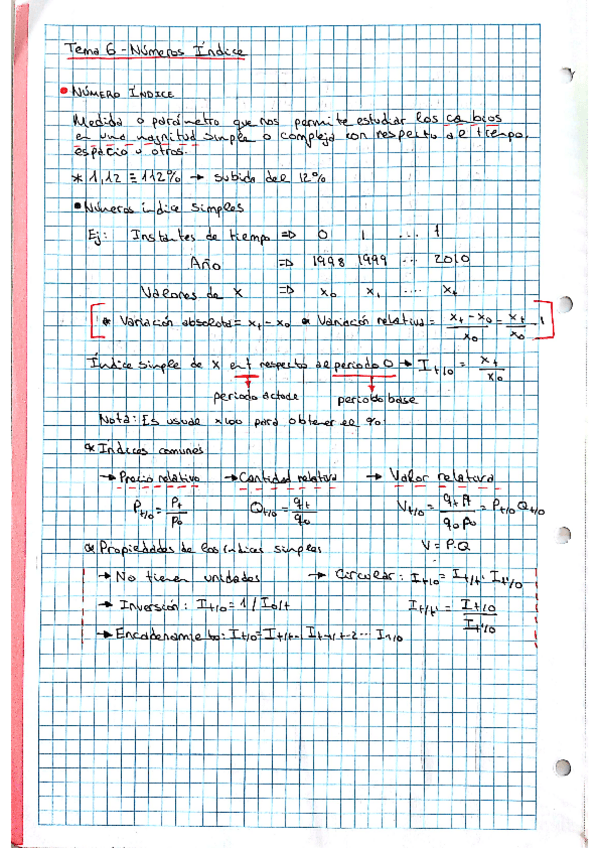 Tema 6 - Números Índice
• NÚMERO ÍNDICE
Medida o parámetro que nos permite estudiar los cambios
en una magnitud simple o compleja con respecto al tiempo,
espacio u otros.
* 1,12 ≡ 112% → subida del 12%
• Números índice simples
Ej: Instantes de tiempo => 0 1 ... t
Año => 1998 1999 ... 2010
Valores de X => x₀ x₁ .... xₜ
* Variación absoluta = xₜ - x₀ * Variación relativa = (xₜ - x₀)/x₀ = xₜ/x₀ - 1
Índice simple de X en t respecto al periodo 0 → I t/0 = xₜ/x₀
periodo actual periodo base
Nota: Es usual x100 para obtener el %
* Índices comunes
→ Precio relativo → Cantidad relativa → Valor relativa
P t/0 = Pₜ/P₀ Q t/0 = qₜ/q₀ V t/0 = qₜ Pₜ/q₀ P₀ = P t/0 Q t/0
* Propiedades de los índices simples V = P·Q
→ No tienen unidades → Circular: I t/0 = I t/t' · I t'/0
→ Inversión: I t/0 = 1 / I 0/t I t/t' = I t/0 / I t'/0
→ Encadenamiento: I t/0 = I t/t-1 · I t-1/t-2 ... I 1/0